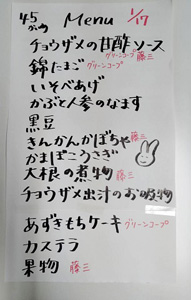 45 Menu 1/17
チョウザメの甘酢ソース
グリーンコープ 藤三
錦たまご グリーンコープ
いそべあげ
かぶと人参のなます
黒豆
きんかんかぼちゃ 藤三
かまぼこうさぎ
大根の煮物 藤三
チョウザメ出汁のお吸物
あずきもちケーキ グリーンコープ
カステラ
果物 藤三